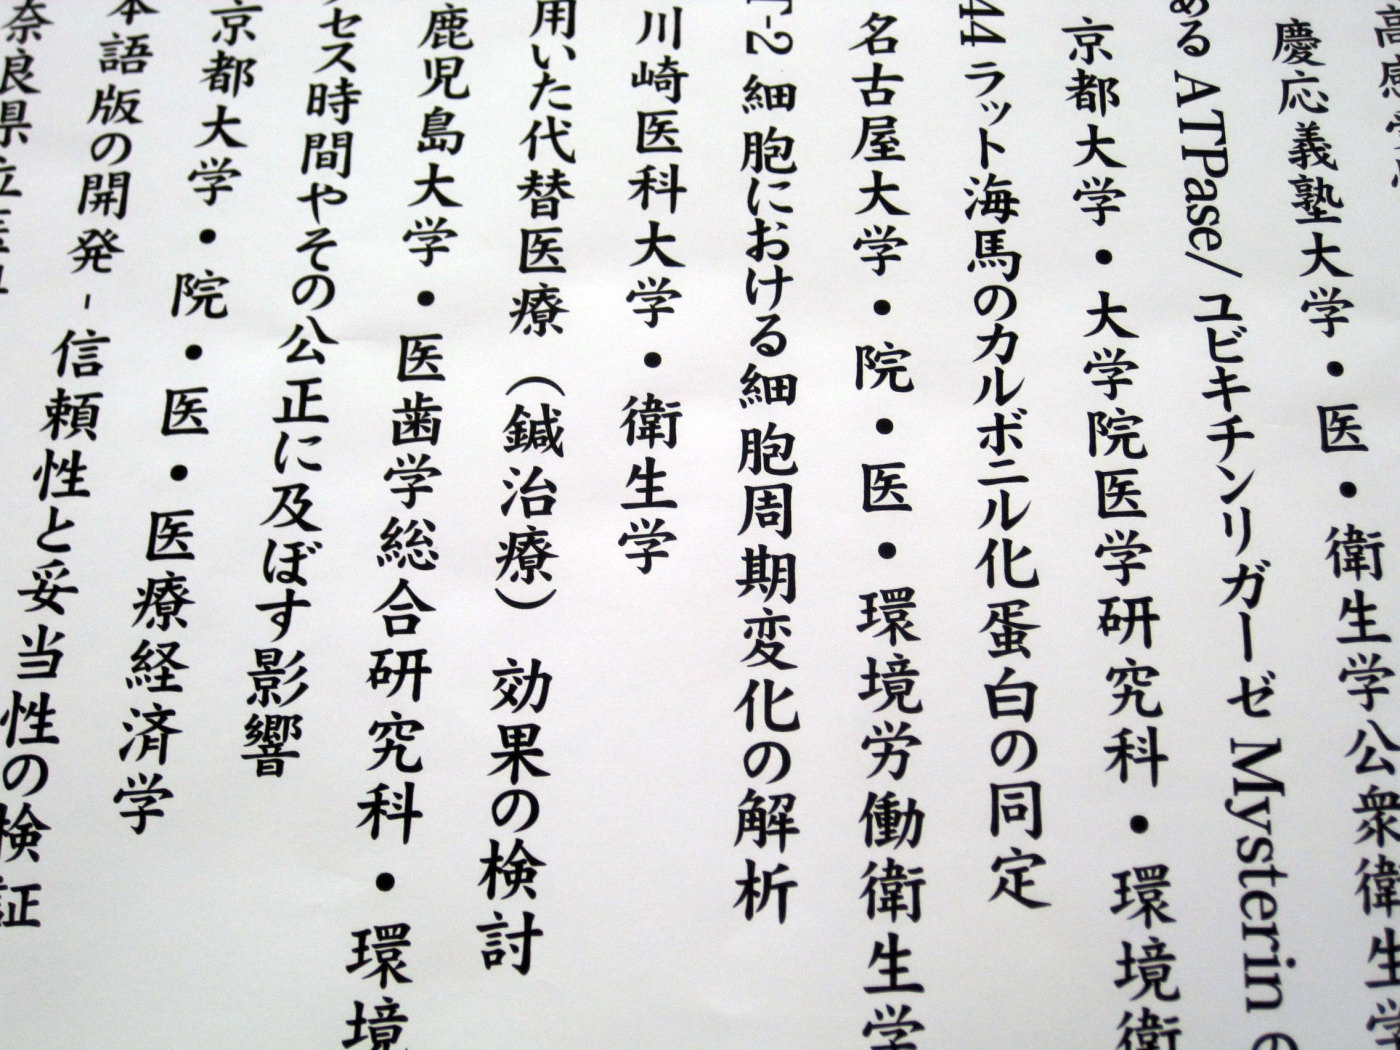 高感
慶応義塾大学・医・衛生学公衆衛生学
ある ATPase/ ユビキチンリガーゼ Mysterin の
京都大学・大学院医学研究科・環境衛
44 ラット海馬のカルボニル化蛋白の同定
名古屋大学・院・医・環境労働衛生学
T-2 細胞における細胞周期変化の解析
川崎医科大学・衛生学
用いた代替医療（鍼治療）効果の検討
鹿児島大学・医歯学総合研究科・環境
セス時間やその公正に及ぼす影響
京都大学・院・医・医療経済学
本語版の開発 - 信頼性と妥当性の検証
奈良県立医